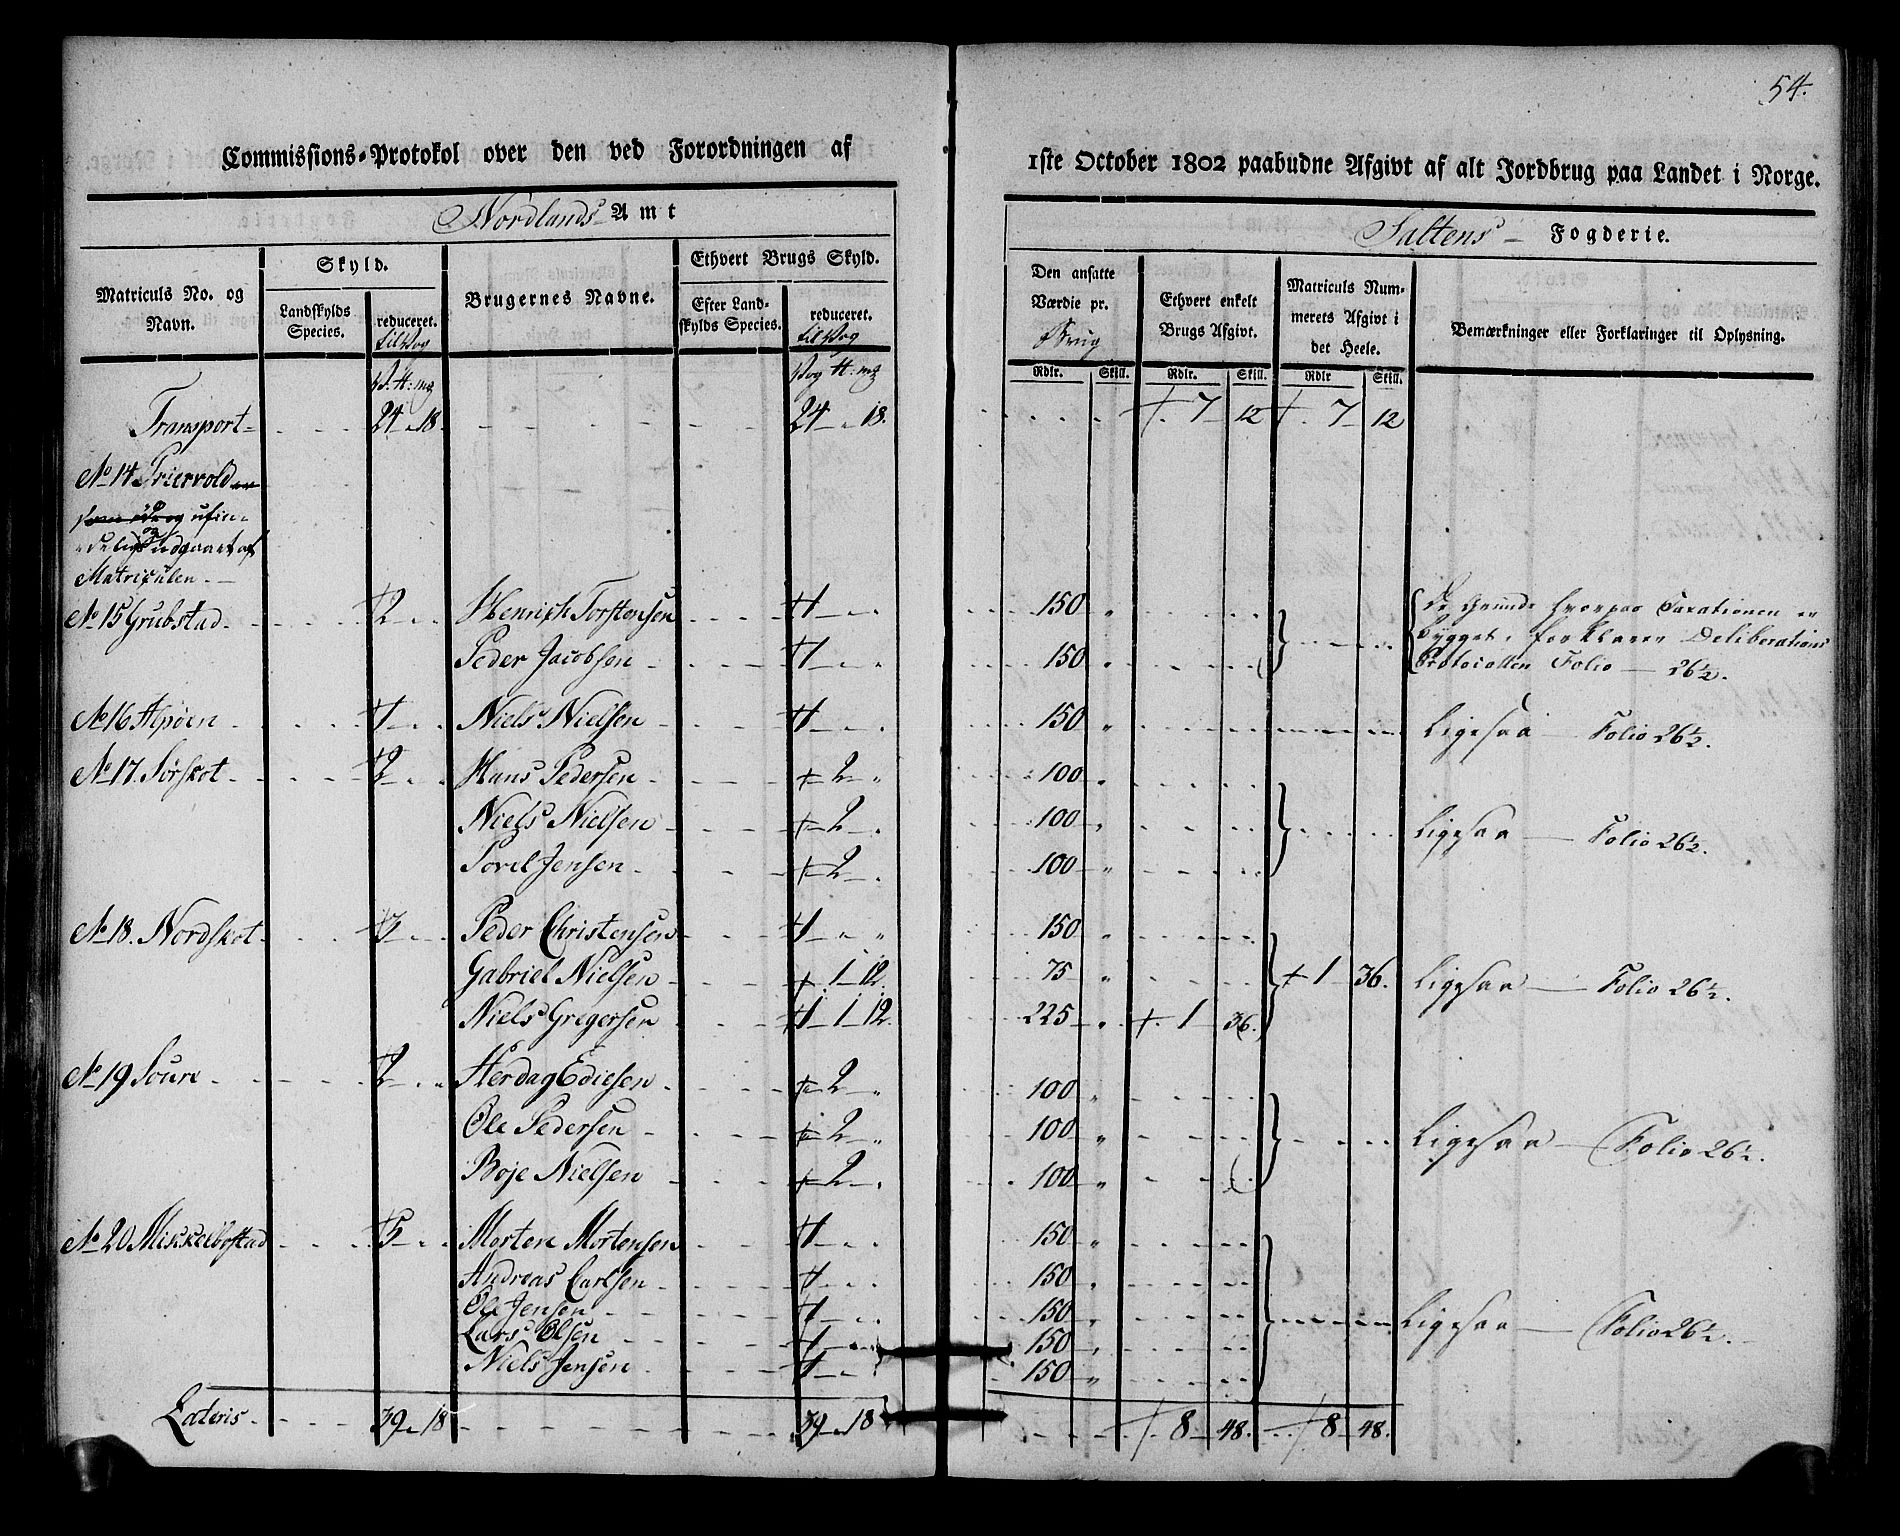 54.
Commissions-Protokol over den ved Forordningen af 1ste October 1802 paabudne Afgivt af alt Jordbrug paa Landet i Norge.
Nordlands Amt
Saltens Fogderie.
Matriculs No. og Navn.
Skyld.
Landskylds Species.
reduceret. til Vog
Brugernes Navne.
Ethvert Brugs Skyld.
Efter Landskylds Species.
reduceret. til Vog
Den ansatte Værdie pr. Brug
Ethvert enkelt Brugs Afgivt.
Matriculs Nummerets Afgivt i det Heele.
Bemærkninger eller Forklaringer til Oplysning.
Rdlr. Skill. Rdlr. Skill. Rdlr Skill.
Transport 24 18. 24 18. 7 12 7 12
No 14
og ufin-
delig og udgaaet af
Matriculen.
No 15 Grubstad. 2 Henrich Torstensen 1 150
De Grunde hvorpaa Taxationen er
bygget, forklarer Deliberations
Protocollen Folio 26½.
Peder Jacobsen 1 150
No 16 1 Niels Nielsen 1 150 Ligesaa Folio 26½.
No 17. Sørskot 2 Hans Pedersen 2 100
Niels Nielsen 2 100 Ligesaa Folio 26½.
Jensen 2 100
No 18. Nordskot 3 Peder Christensen 1 150
Gabriel Nielsen 1 12. 75 1 36. Ligesaa Folio 26½.
Niels Gregersen 1 1 12. 225 1 36.
No 19 2 100
Ole Pedersen 2 100 Ligesaa Folio 26½.
Boje Nielsen 2 100
No 20 Mikkelbostad 5 Morten Mortensen 1 150
Andreas Carlsen 1 150
Ole Jensen 1 150 Ligesaa Folio 26½.
Lars Olsen 1 150
Niels Jensen 1 150
Lateris 39 18 39 18 8 48. 8 48.